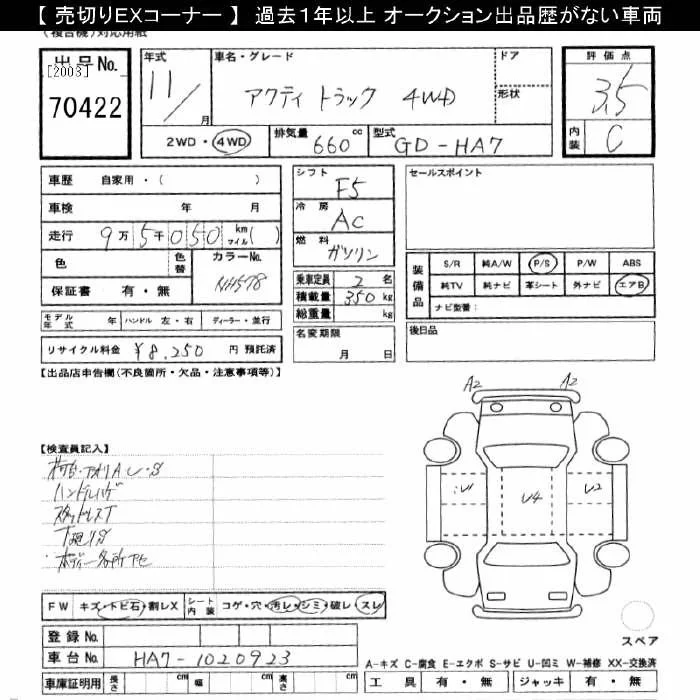 【 売切りEXコーナー 】 過去1年以上 オークション出品歴がない車両
(複合機)対応用紙
出品No.
[2003]
70422
年式 車名・グレード ドア 評価点
11/ 月 アクティ トラック 4WD 形状 3.5
2WD・4WD 排気量 660 cc 型式 GD-HA7 内装 C
車歴 自家用・( )
車検 年 月
走行 9万5千050 km マイル( )
色 色替 カラーNo. NH578
保証書 有・無
モデル年式 年 ハンドル 左・右 ディーラー・並行
リサイクル料金 ¥8,250 円 預託済
シフト F5
冷房 AC
燃料 ガソリン
乗車定員 2 名
積載量 350 kg
総重量 kg
名変期限 月 日
セールスポイント
装備品 S/R 純A/W P/S P/W ABS
純TV 純ナビ 革シート 外ナビ エアB
ナビ型番:
後日品
【出品店申告欄(不良箇所・欠品・注意事項等)】
A2 A2
【検査員記入】
ハンドル
スタッドレスT
U1 U4 U2
FW キズ・トビ石・割レX シート内装 コゲ・穴・汚レ・シミ・破レ・スレ
スペア
登録No.
車台No. HA7-1020923
A-キズ C-腐食 E-エクボ S-サビ U-凹ミ W-補修 XX-交換済
車庫証明用 長さ cm 幅 cm 高さ cm 工具 有・無 ジャッキ 有・無